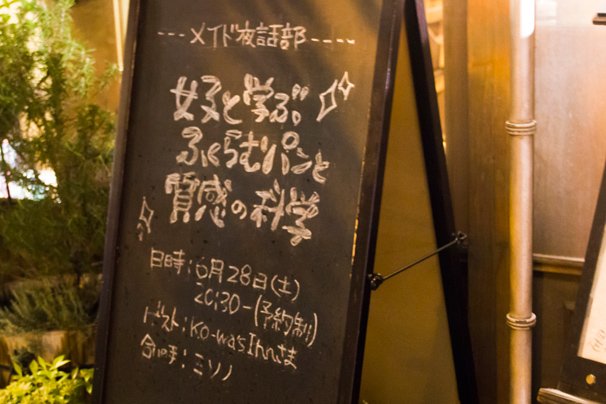 ---メイド夜話部----
好と学ぶ
ふくらむパンと
質感の科学
日時:6月28日(土)
20:30-(予約制)
ゲスト:ko-wasInnさま